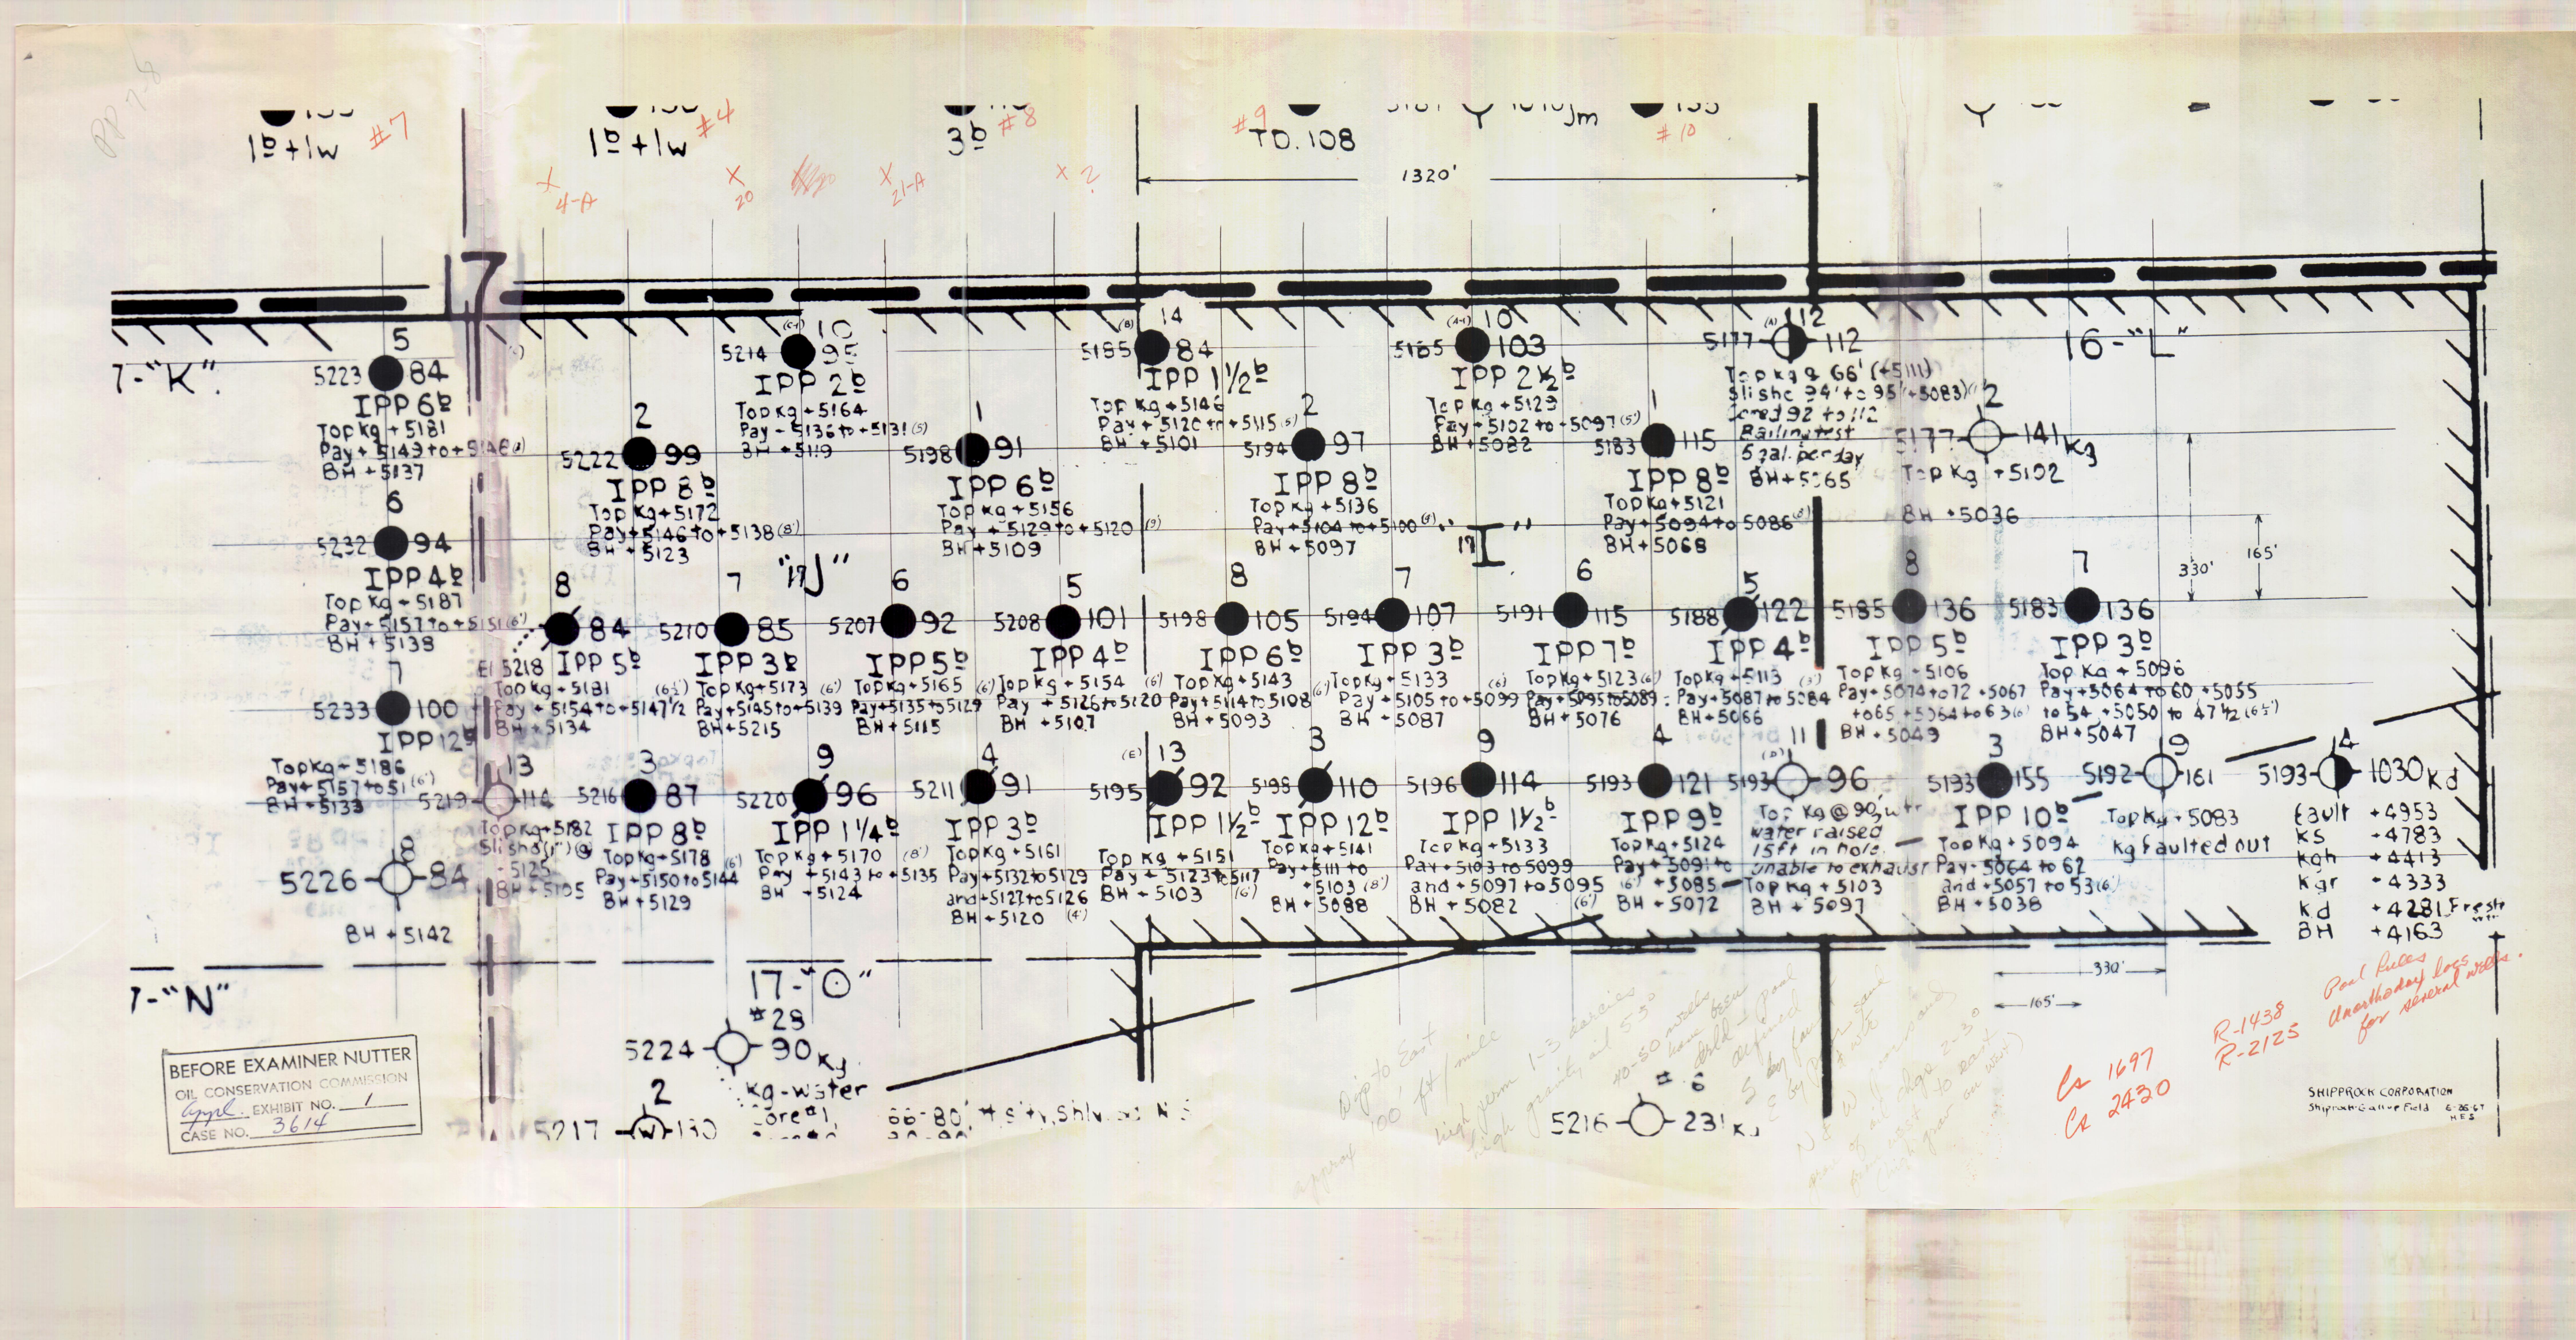 #7
1b + 1w
#4
1b + 1w
#8
3b
#9
TD. 108
Jm
#10
X 4-A
X 20
X 21-A
X ?
1320'
17
7-"K"
5
5223 84
IPP 6b
Top Kg + 5181
BH + 5137
6
5232 94
IPP 4b
Top Kg + 5187
Pay + 5157 to + 5151 (6')
BH + 5138
7
5233 100
IPP 12b
Top Kg + 5186
Pay + 5157 to 51 (6')
BH + 5133
8
5226 84
BH + 5142
10
5214 95
IPP 2b
Top Kg + 5164
Pay + 5136 to + 5131 (5)
BH + 5119
2
5222 99
IPP 8b
Top Kg + 5172
Pay + 5146 to + 5138 (8')
BH + 5123
1
5198 91
IPP 6b
Top Kg + 5156
Pay + 5129 to + 5120 (9')
BH + 5109
(B) 14
5185 84
IPP 1 1/2 b
Top Kg + 5146
Pay + 5120 to + 5115 (5)
BH + 5101
2
5194 97
IPP 8b
Top Kg + 5136
Pay + 5104 to + 5100
BH + 5097
(A-1) 10
5185 103
IPP 2 1/2 b
Top Kg + 5129
Pay + 5102 to + 5097 (5')
BH + 5082
1
5183 115
IPP 8b
Top Kg + 5121
Pay + 5094 to 5086
BH + 5068
(A) 112
5177 112
Top Kg @ 66' (+5111)
Sli sho 94' to 95' (+5083)
Cored 92 to 112
Bailing test
5 gal. per day
BH + 5065
16-"L"
2
5177 141 Kg
Top Kg + 5102
BH + 5036
330'
165'
"17J"
"17 I"
8
84
El 5218 IPP 5b
Top Kg + 5181 (6½')
Pay + 5154 to + 5147 1/2
BH + 5134
7
5210 85
IPP 3b
Top Kg + 5173 (6')
Pay + 5145 to + 5139
BH + 5215
6
5207 92
IPP 5b
Top Kg + 5165 (6')
Pay + 5135 to 5129
BH + 5115
5
5208 101
IPP 4b
Top Kg + 5154 (6')
Pay + 5126 to 5120
BH + 5107
8
5198 105
IPP 6b
Top Kg + 5143
Pay + 5114 to 5108 (6')
BH + 5093
7
5194 107
IPP 3b
Top Kg + 5133 (6)
Pay + 5105 to + 5099
BH + 5087
6
5191 115
IPP 7b
Top Kg + 5123 (6')
Pay + 5095 to 5089
BH + 5076
5
5188 122
IPP 4b
Top Kg + 5113 (3')
Pay + 5087 to 5084
BH + 5066
8
5185 136
IPP 5b
Top Kg + 5106
Pay + 5074 to 72 + 5067
to 65 + 5064 to 63 (6')
BH + 5049
7
5183 136
IPP 3b
Top Kg + 5096
Pay + 5064 to 60 + 5055
to 54 + 5050 to 47 1/2 (6½')
BH + 5047
13
5219 114
Top Kg + 5182
Sli sho (1') @
+ 5125
BH + 5105
3
5216 87
IPP 8b
Top Kg + 5178 (6')
Pay + 5150 to 5144
BH + 5129
9
5220 96
IPP 1 1/4 b
Top Kg + 5170 (8')
Pay + 5143 to + 5135
BH + 5124
4
5211 91
IPP 3b
Top Kg + 5161
Pay + 5132 to 5129
and + 5127 to 5126
BH + 5120 (4')
(E) 13
5195 92
IPP 1 1/2 b
Top Kg + 5151
Pay + 5123 to 5117
BH + 5103 (6')
3
5198 110
IPP 12b
Top Kg + 5141
Pay + 5111 to
+ 5103 (8')
BH + 5088
9
5196 114
IPP 1 1/2 b
Top Kg + 5133
Pay + 5103 to 5099
and + 5097 to 5095
BH + 5082 (6')
4
5193 121
IPP 9b
Top Kg + 5124
Pay + 5091 to
(6') + 5085
BH + 5072
(D) 11
5193 96
Top Kg @ 90, wtr
water raised
15 ft in hole.
unable to exhaust
Top Kg + 5103
BH + 5097
3
5193 155
IPP 10b
Top Kg + 5094
Pay + 5064 to 62
and + 5057 to 53 (6')
BH + 5038
9
5192 161
Top Kg + 5083
Kg Faulted out
14
5193 1030 Kd
Fault + 4953
Ks + 4783
Kgh + 4413
Kgr + 4333
Kd + 4281 Fresh wtr
BH + 4163
330'
165'
7-"N"
17-"O"
#29
5224 90 Kg
Kg-water
Core #1, 66-80'
2
5217 W 130
#6
5216 231 Kg
Dip to East
approx 100' ft/mile
high perm 1-3 darcies
high gravity oil 55°
40-50 wells
have been
drld
Cs 1697
Cs 2430
R-1438
R-2125
Pool Rules
Unorthodox locs
for several wells.
BEFORE EXAMINER NUTTER
OIL CONSERVATION COMMISSION
Appl. EXHIBIT NO. 1
CASE NO. 3614
SHIPROCK CORPORATION
Shiprock-Gallup Field 6-26-67
H.E.S.